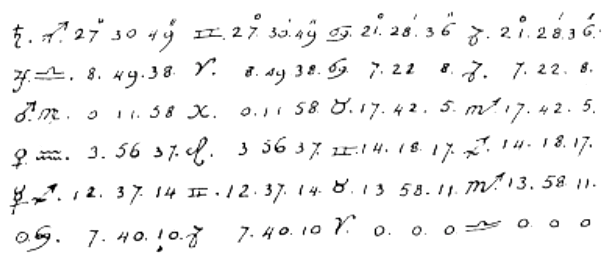 ♄. ♐. 27° 30 49" ♊. 27° 30' 49" ♋. 21° 28' 36" ♑. 21° 28' 36".
♃ ♎. 8. 49. 38. ♈. 8. 49 38. ♋. 7. 22 8. ♑. 7. 22. 8.
♂ ♍. 0 11. 58 ♓. 0. 11 58. ♉. 17. 42. 5. ♏ 17. 42. 5.
♀ ♒. 3. 56 37. ♌. 3 56 37. ♊. 14. 18. 17. ♐. 14. 18. 17.
☿ ♐. 12. 37. 14 ♊. 12. 37. 14. ♉. 13 58. 11. ♏. 13. 58 11.
☉ ♋. 7. 40. 10. ♑ 7. 40. 10 ♈. 0. 0. 0 ♎ 0 0 0